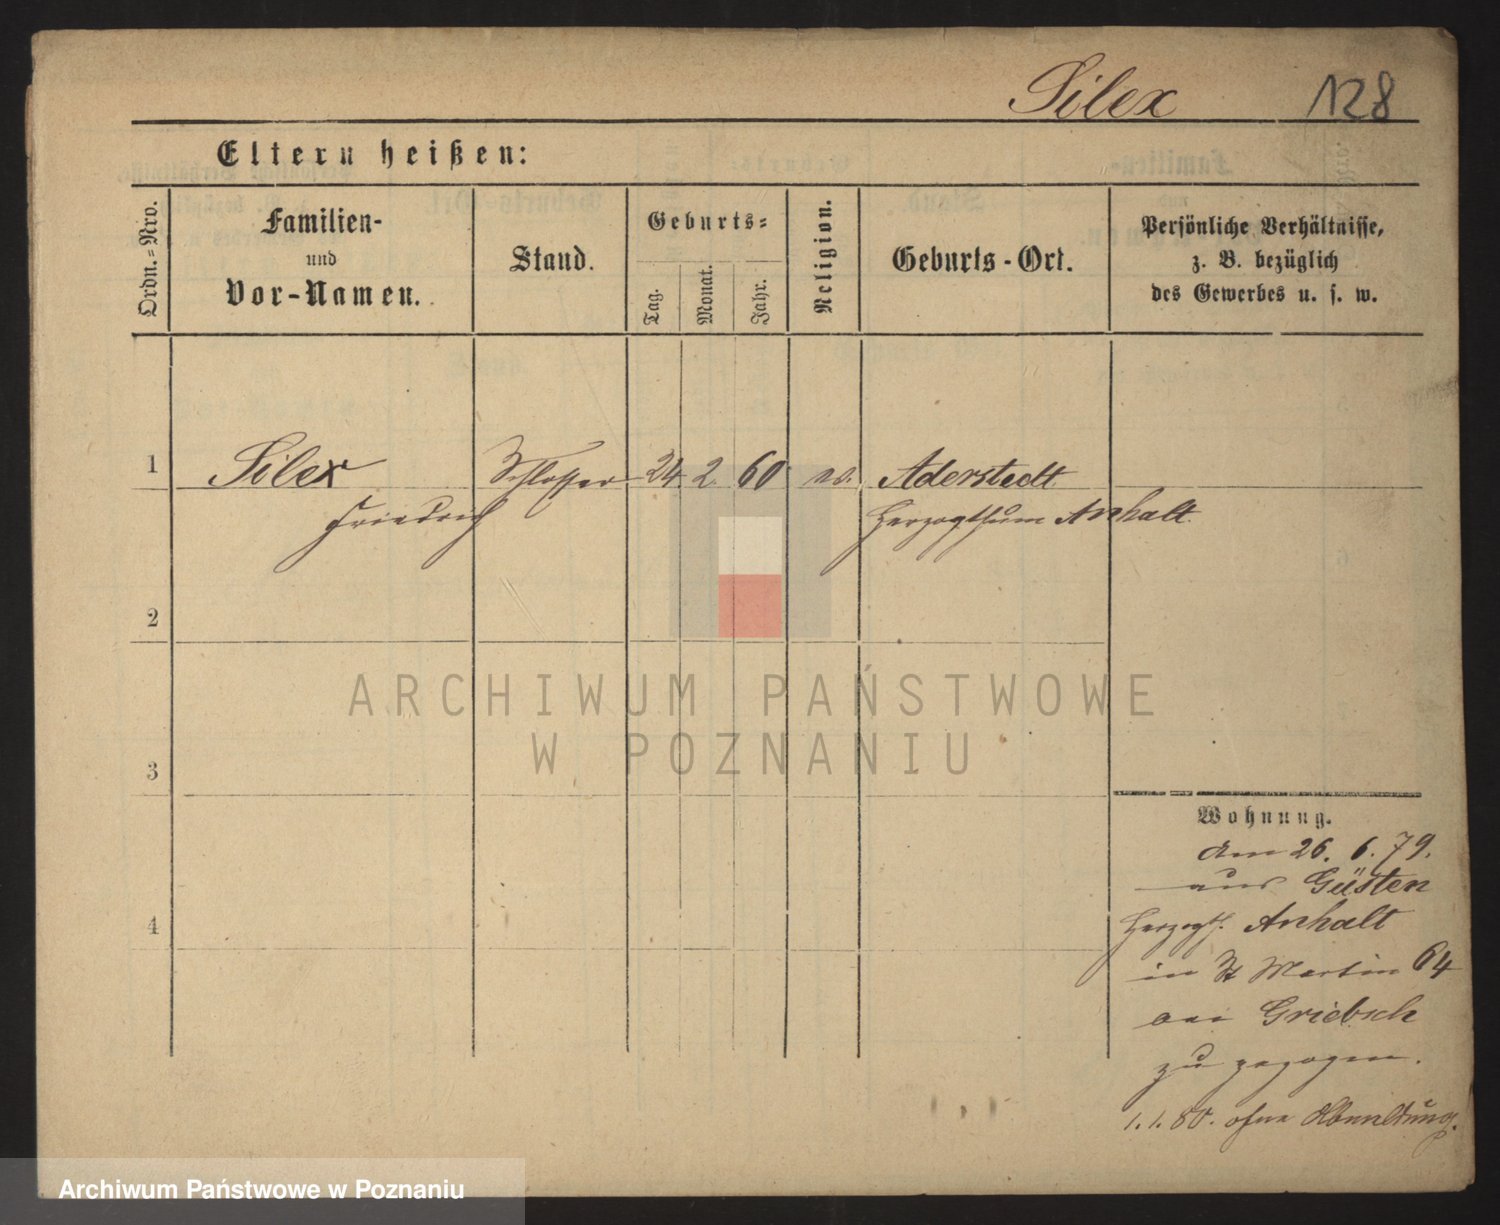 Silex 128
Eltern heißen:
Ordn.-Nro.
Familien-
und
Vor-Namen.
Stand.
Geburts-
Tag.
Monat.
Jahr.
Religion.
Geburts-Ort.
Persönliche Verhältnisse,
z. B. bezüglich
des Gewerbes u. s. w.
1 Silex Schlosser 24. 2. 60 ev. Aderstedt
Friedrich Herzogthum Anhalt
2
3
4
ARCHIWUM PAŃSTWOWE
W POZNANIU
Wohnung.
Am 26. 6. 79.
aus Güsten
Herzogth. Anhalt
in St Martin 64
bei Griebsch
zugezogen.
1. 1. 80. ohne Abmeldung.
Archiwum Państwowe w Poznaniu